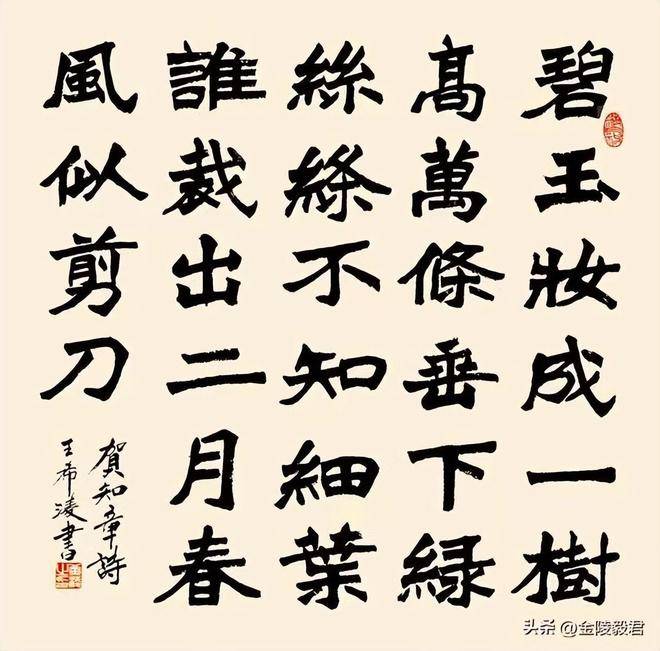 碧玉妝成一樹
髙萬條垂下緑
絲絛不知細葉
誰裁出二月春
風似剪刀
賀知章詩
王希淩書
头条 @金陵毅君